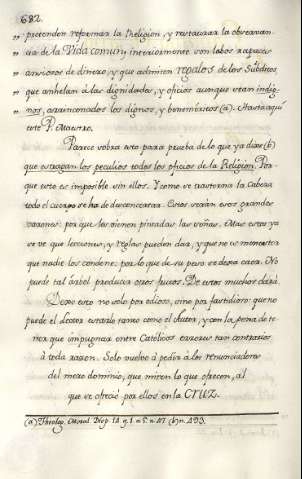 682.
„ pretenden reformar la Religion, y restaurar la observan-
„ cia de la Vida comun; y interiormente son lobos rapaces
„ ansiosos de dinero, y que admiten regalos de los Subditos,
„ que anhelan a las dignidades, y oficios aunque sean indig-
„ nos, arrinconados los dignos, y benemeritos (a). Hasta aqui
este P. Maestro.
Parece sobra esto para prueba de lo que ya dixe (b)
que estragan los peculios todos los oficios de la Religion. Por
que esto es imposible sin ellos. Y como se trastorna la Cabeza
todo el cuerpo se ha de desconcertar. Estos serán esos grandes
varones: por que los tienen privados las
ya se ve que lecciones, y reglas pueden dar, y que no es menester
que nadie los condene; por lo que de su peso se dexa caer. No
puede tal árbol producir otros frutos. De estos mucho dixe
Dexo esto no solo por odioso, sino por fastidioso: que no
puede el Lector estarlo tanto como el Autor, y con la pena de te-
ner que impugnar entre Católicos errores tan contrarios
à toda razon. Solo vuelvo à pedir a los renunciadores
del mero dominio, que miren lo que ofrecen, al
que se ofreció por ellos en la CRUZ.
(a) Theolog. Moral Disp. 18. q. 1. n. 17 (b) n. 493.